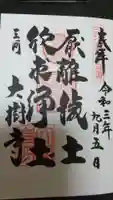 奉拝
令和三年九月五日
厭離穢土
欣求浄土
三河
大樹寺